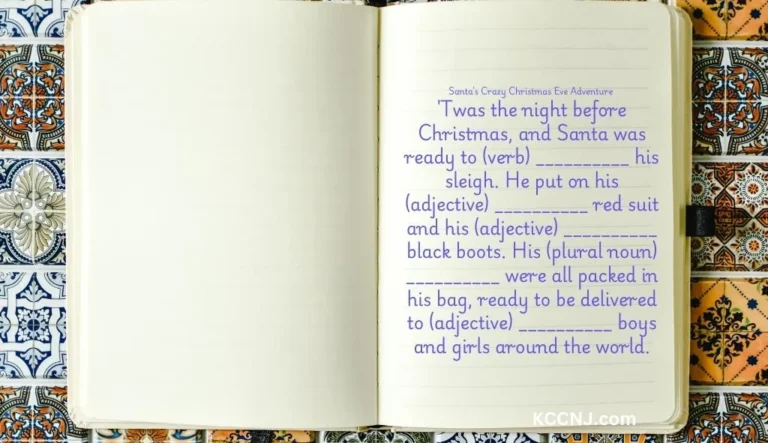 Santa's Crazy Christmas Eve Adventure
'Twas the night before
Christmas, and Santa was
ready to (verb) __________ his
sleigh. He put on his
(adjective) __________ red suit
and his (adjective) __________
black boots. His (plural noun)
__________ were all packed in
his bag, ready to be delivered
to (adjective) __________ boys
and girls around the world.
KCCNJ.com